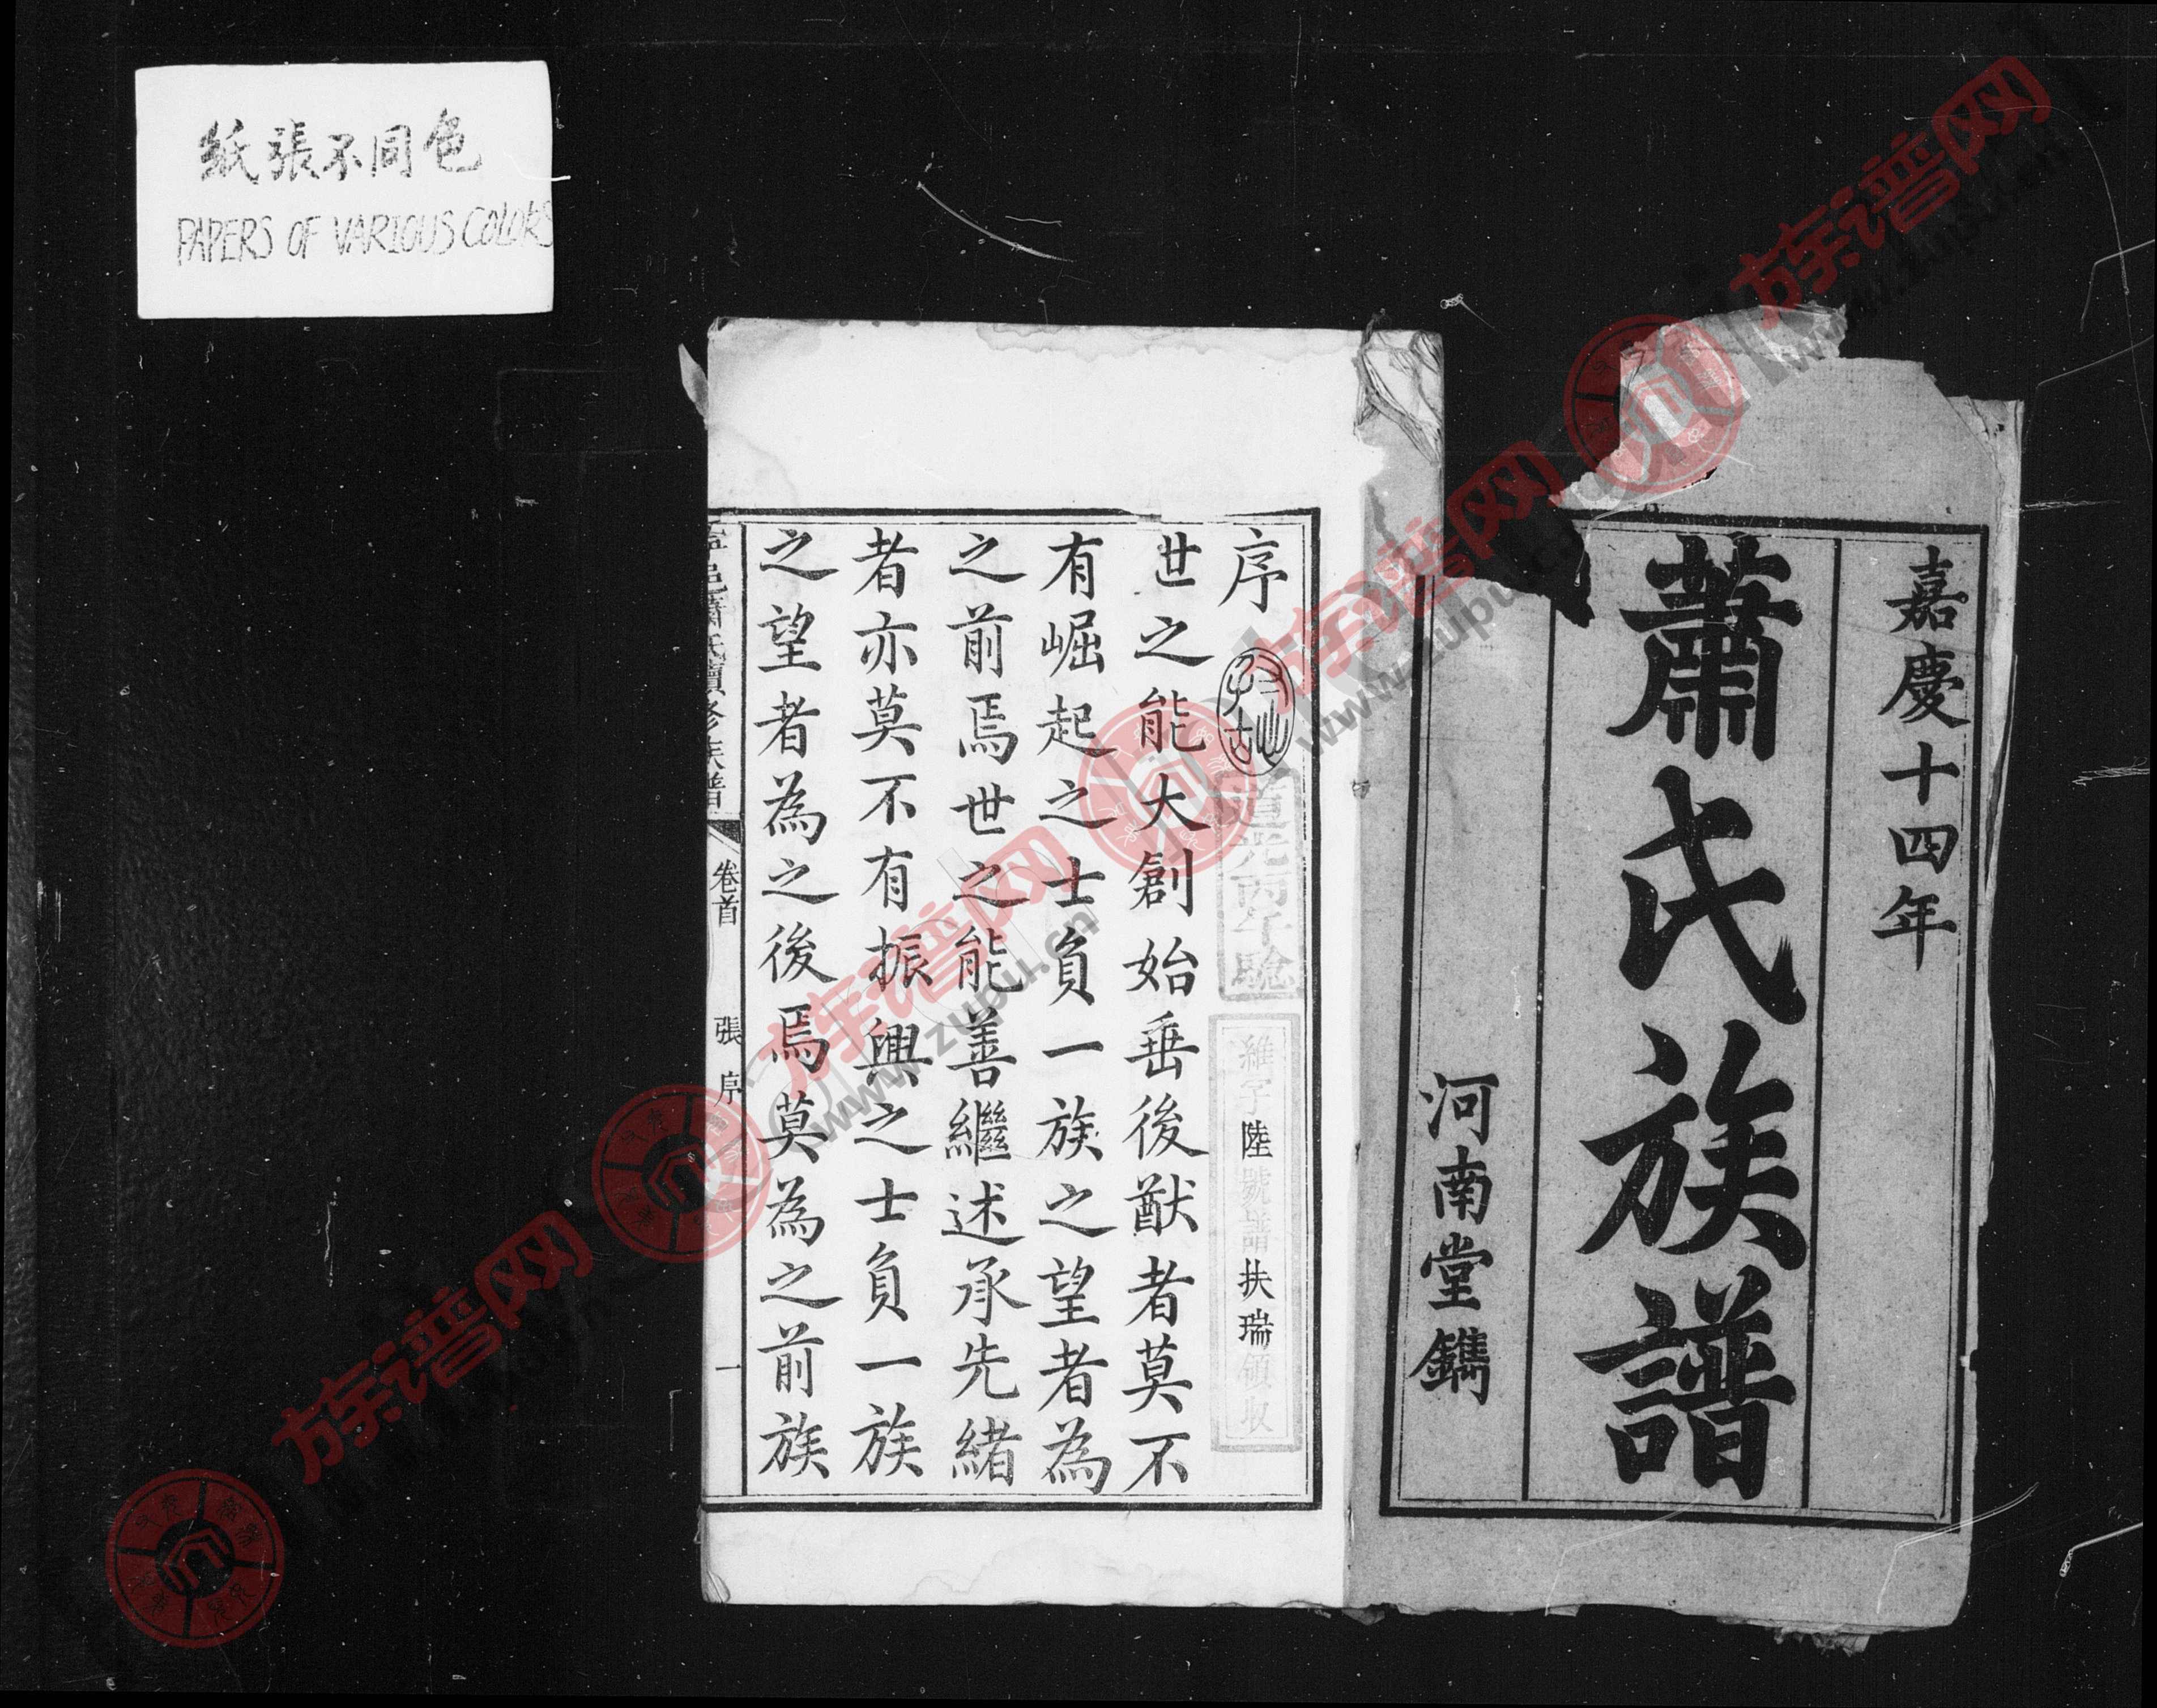 紙張不同色
PAPERS OF VARIOUS COLORS
嘉慶十四年
蕭氏族譜
河南堂鐫
序
道光丙午驗
維字陸號譜扶瑞領収
世之能大創始垂後猷者莫不
有崛起之士負一族之望者為
之前焉世之能善繼述承先緒
者亦莫不有振興之士負一族
之望者為之後焉莫為之前族
邑蕭氏續修族譜
卷首
張序
一
族谱网
www.zupu.cn
族谱网
www.zupu.cn
族谱网
www.zupu.cn
族谱网